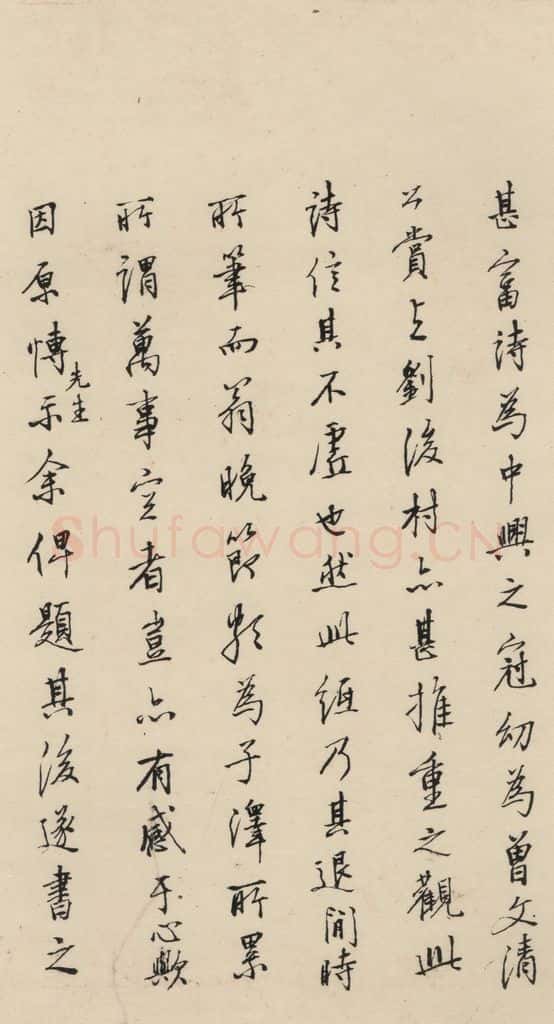 甚富詩為中興之冠幼為曾文清
公賞之劉後村亦甚推重之觀此
詩信其不虛也然此紙乃其退閒時
所筆而翁晚節頗為子澤所累
所謂萬事空者豈亦有感于心歟
因原博先生示余俾題其後遂書之
Shufawang.CN